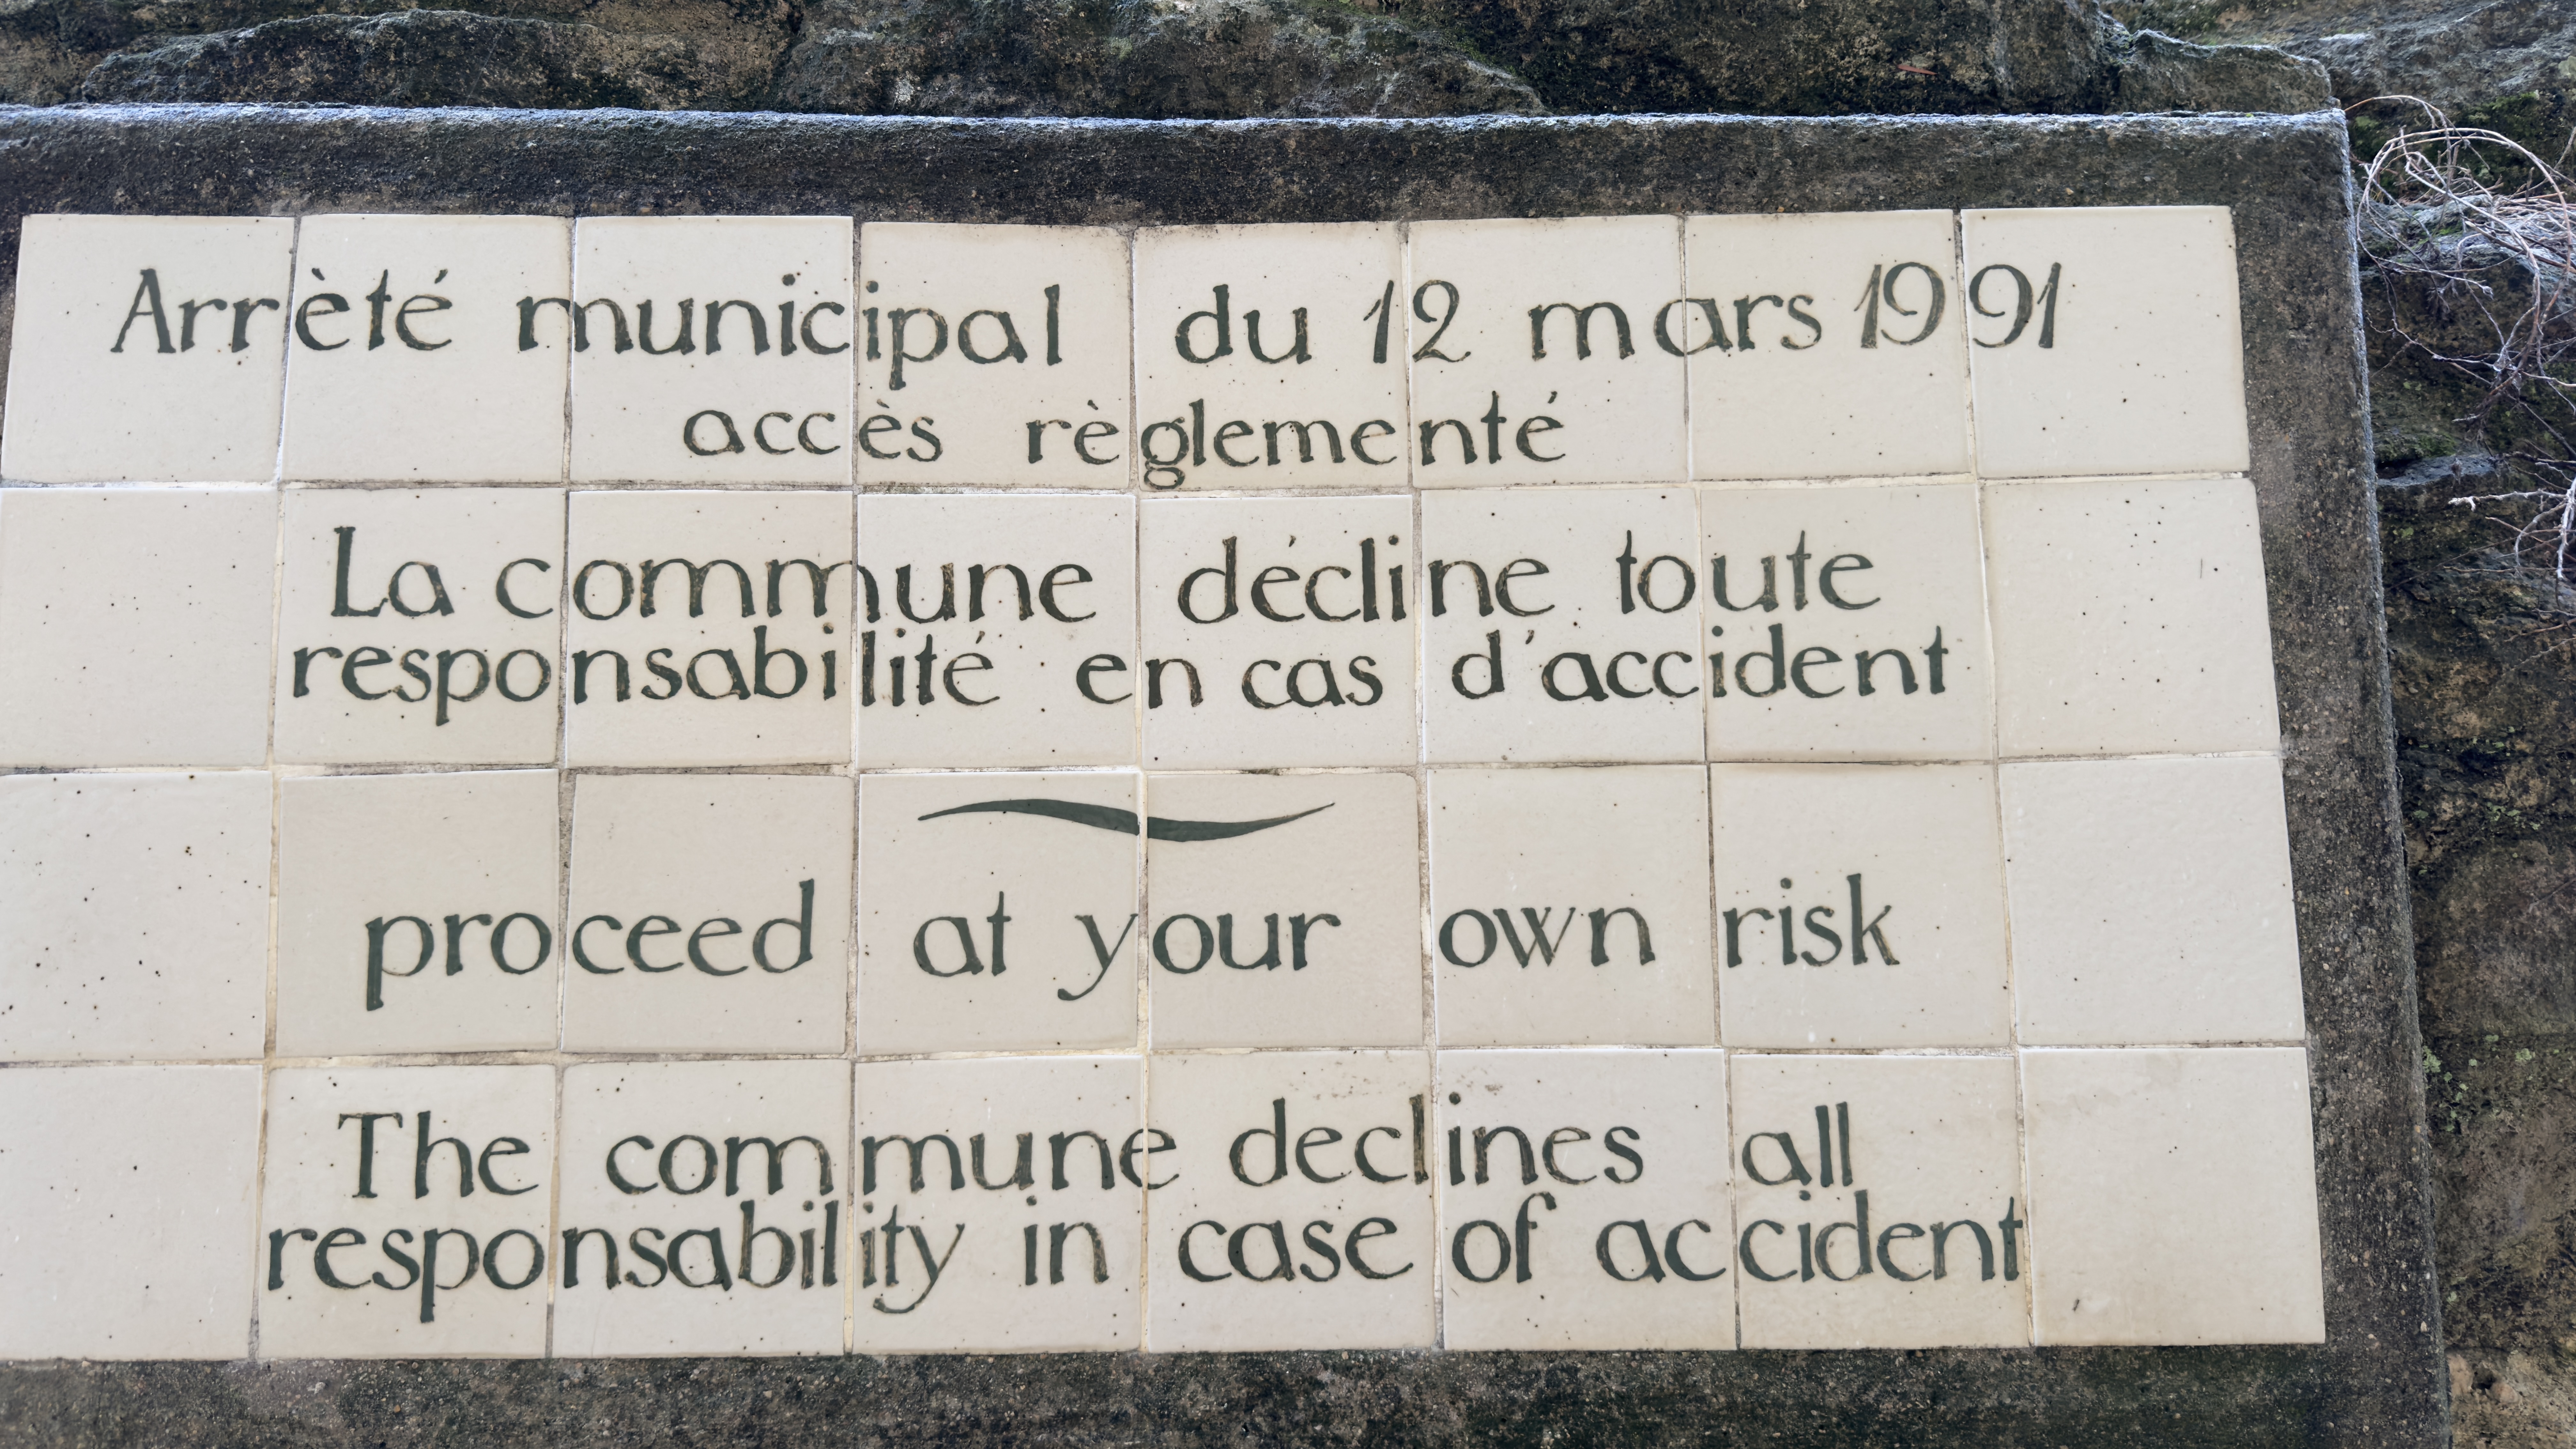 Arrèté municipal du 12 mars 1991
accès règlementé
La commune décline toute
responsabilité en cas d'accident
proceed at your own risk
The commune declines all
responsability in case of accident